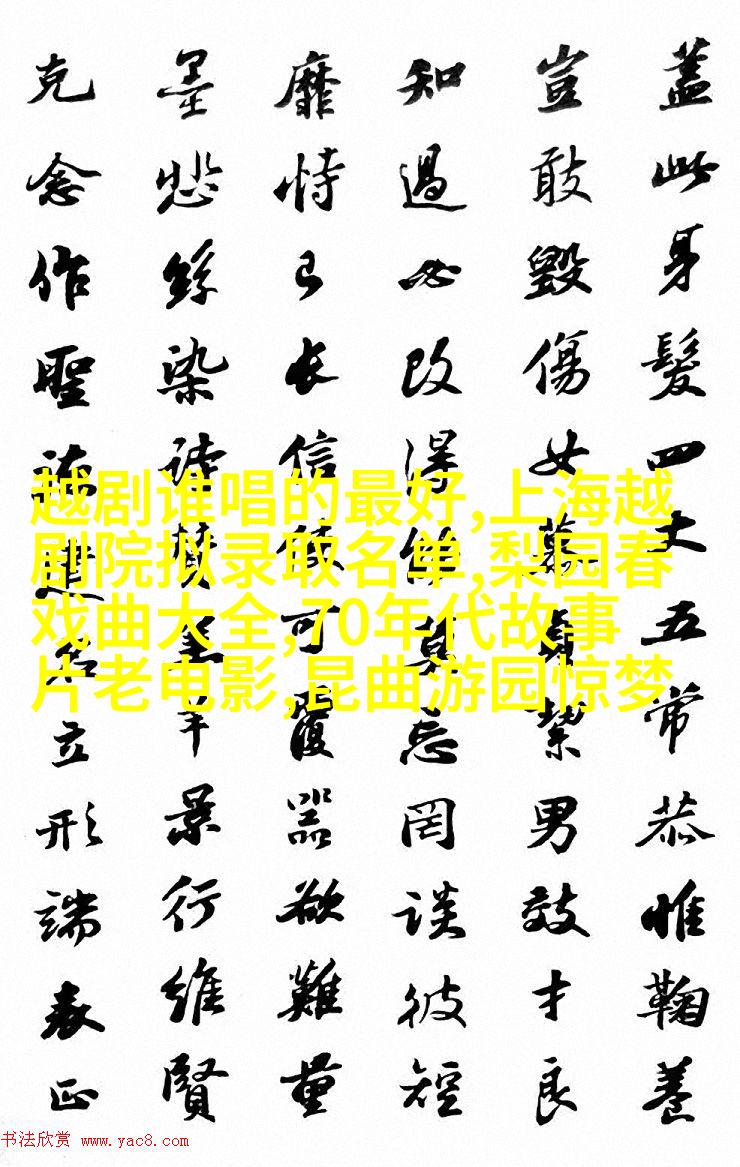 蓋此身髮四大五常恭惟鞠養
豈敢毀傷女慕貞絜男效才良
知過必改得能莫忘罔談彼短
靡恃己長信使可覆器欲難量
墨悲絲染詩讚羔羊景行維賢
克念作聖德建名立形端表正
越剧谁唱的最好,上海越
剧院拟录取名单,梨园春
戏曲大全,70年代故事
片老电影,昆曲游园惊梦
书法欣赏 www.yac8.com